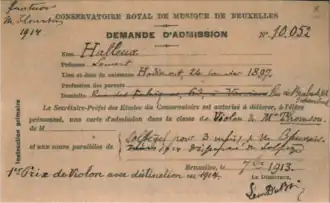 CONSERVATOIRE ROYAL DE MUSIQUE DE BRUXELLES
1914
DEMANDE D'ADMISSION
N° 10.052
Nom Halleux
Prénoms Laurent
Lieu et date de naissance Hodimont, 26 janvier 1897
Profession des parents
Domicile Verviers
Le Secrétaire-Préfet des Etudes du Conservatoire est autorisé à délivrer, à l'élève
présenté, une carte d'admission dans la classe de Violon de Mr Thomson
de M
et aux cours parallèles de Solfège pour 3 mois
dispensé de Solfège
Bruxelles, le 7bre 1913.
Le Directeur,
1er Prix de Violon avec distinction en 1914
Instruction primaire